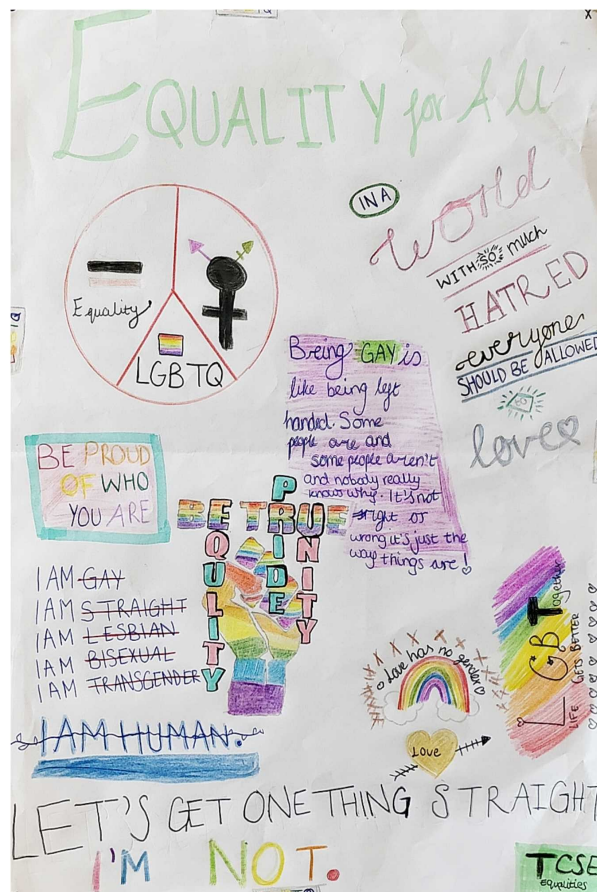 EQUALITY for All
IN A
World
WITH SO much
HATRED
everyone
SHOULD BE ALLOWED
to
love
Equality
LGBTQ
Being GAY is
like being left
handed. Some
people are and
some people aren't
and nobody really
knows why. It's not
right or
wrong it's just the
way things are!
BE PROUD
OF WHO
YOU ARE
BE TRUE
PRIDE
EQULITY
UNITY
I AM GAY
I AM STRAIGHT
I AM LESBIAN
I AM BISEXUAL
I AM TRANSGENDER
I AM HUMAN.
Love has no gender
Love
LGBT together
LIFE GETS BETTER
LET'S GET ONE THING STRAIGHT
I'M NOT.
TCSE
equalities